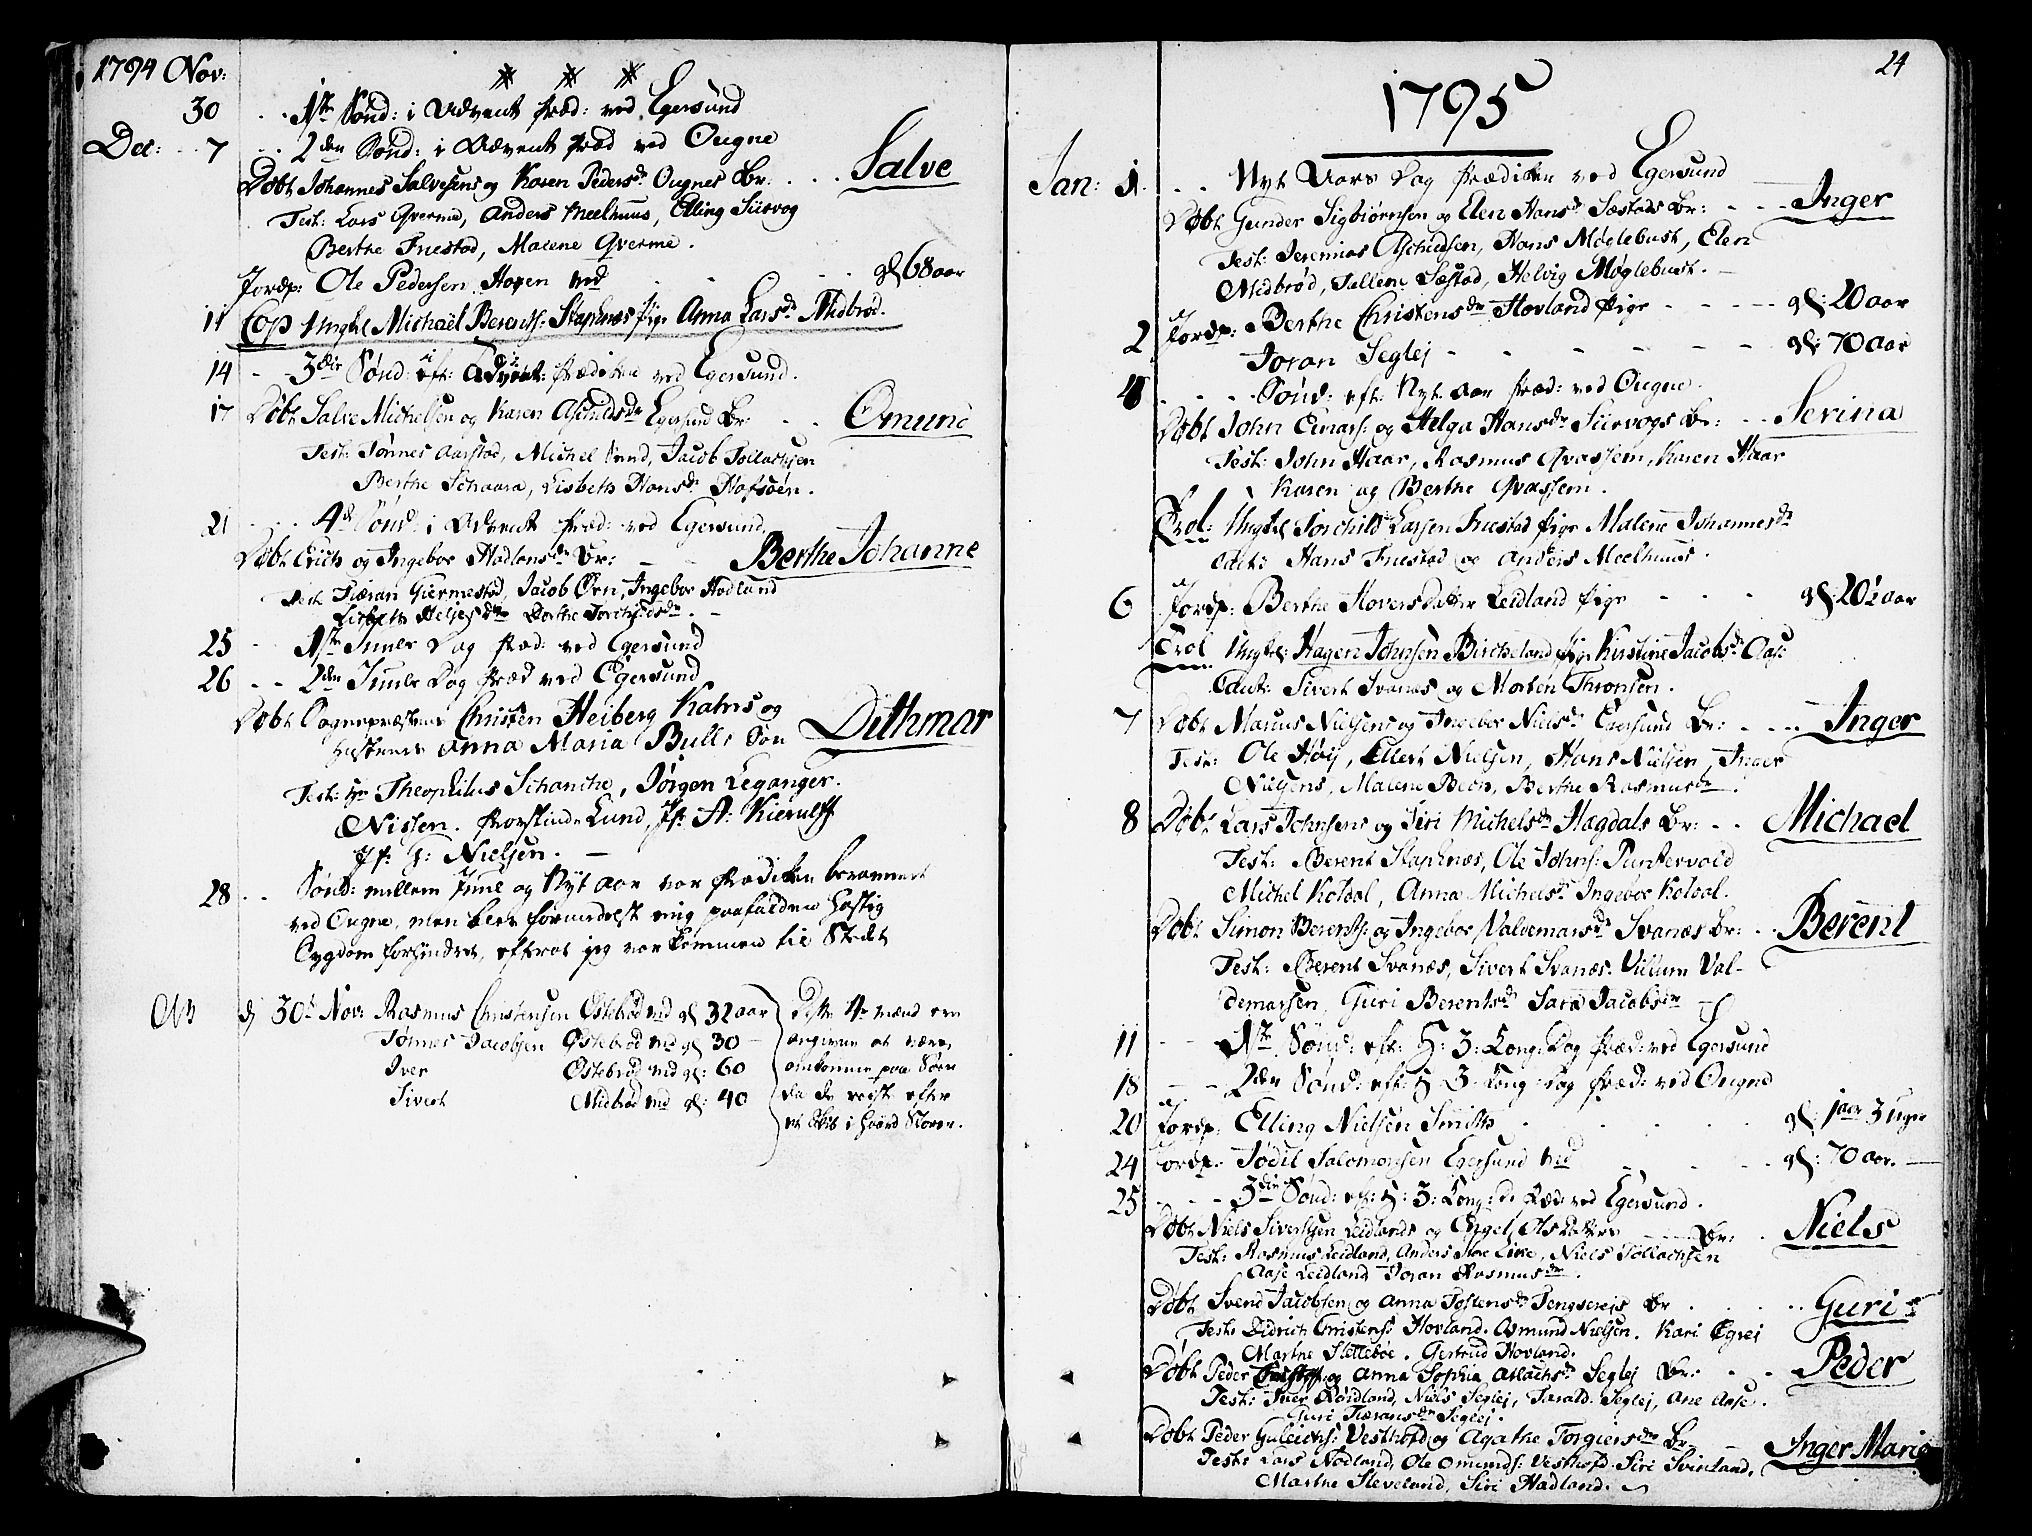 1794 Nov:
30 . . 1ste Sønd: i Advent Præd: ved Egersund
Dec: . . 7 . . 2den Sønd: i Advent Præd ved Ougne
Døbt Johannes Salvesens og Karen Pedersdr Ougnes Br: . . . Salve
Test: Lars Qverme, Anders Meelhuus, Elling Siirvog
Berthe Fuestad, Malene Qverme.
Jordp: Ole Pedersen Hogen md . . . gl 68 aar
11 Cop Ungkl Michaël Berents: Stapnæs Pige Anna Larsdr Midbrød.
14 - - 3die Sønd: i Advent: Prædiken ved Egersund.
17 Døbt Salve Michelsen og Karen Aschildsdr Egersund Br: . . Omund
Test: Tønnes Aarstad, Michel Svend, Jacob Tollachsen
Berthe Schaara, Lisbeth Hansdr Hofsøen.
21 . . . 4de Sønd: i Advent Præd: ved Egersund
Døbt Erich og Ingebor Hadlandsdr Br: - - Berthe Johanne
Test Tiæran Giermestad, Jacob Ørn, Ingebor Hadland
Lisbeth Heljesdr Dorthe Torchildsdr. -
25 - 1ste Juule Dag Præd: ved Egersund
26 . . 2den Juule Dag Præd ved Egersund
Døbt Sognepræstens Christen Heiberg Kahrs og
Hustrues Anna Maria Bulls Søn Dithmar
Test: Hr Theophilus Schanche, Jørgen Leganger.
Nissen. Provstinde Lund, Jfr A: Kierulff
Jfr: G: Nielsen. -
28 . . Sønd: mellem Juul og Nyt Aar var Prædiken berammet
ved Ougne, men blev formedelst mig paafalden hastig
Sygdom forhindret, efterat jeg var kommen til Stedet
NB d 30te Nov: Rasmus Christensen Østebrød md gl 32 aar Disse 4re mænd ere
Tønnes Jacobsen Østebrød md gl 30 - angivne at være
Iver Østebrød md gl: 60 omkomne paa Søen
Sivert Midbrød md gl: 40 da de reiste efter
et Skib i haard Storm.
24
1795
Jan: 1. . . Nyt Aars Dag Prædiken ved Egersund
Døbt Gunder Sigbiørnsen og Elen Hansdr Sæstads Br: - - - Inger
Test: Jeremias Aschildsen, Hans Møglebust, Elen
Midbrød, Tallene Sæstad, Helvig Møglebust. -
Jordp: Berthe Christensdr Hovland Pige - - - - gl: 20 aar
2 Joran Seglej - - - - - - gl: 70 aar
4 . . . . Sønd: eft: Nyt Aar Præd: ved Ougne.
Døbt John Einars: og Helga Hansdr Siirvogs Br: . . Serina
Test: John Haar, Rasmus Qvassem, Karen Haar
Karen og Berthe Qvassem.
Trol: Ungkl Torchild Larsen Fuestad Pige Malene Johannesdr
Caut: Hans Fuestad og Anders Meelhuus.
6 Jordp: Berthe Hoversdatter Leidland Pige - - - gl: 20½ aar
Trol Ungkl: Hagen Johnsen Bircheland Pige Kirstine Jacobsdr Aas:
Caut: Sivert Svanes og Morten Thronsen.
7 Døbt Marius Nielsens og Ingebor Nielsdr Egersund Br: - - - - Inger
Test: Ole Høij, Ellert Nielsen, Hans Nielsen, Inger
Nielsens, Malene Beon, Berthe Rasmusdr.
8 Døbt Lars Johnsens og Siri Michelsdr Hægdals Br: . . Michael
Test: Berent Stapnæs, Ole Johns: Puntervold
Michel Koldal, Anna Michelsdr Ingebor Koldal.
Døbt Simon Berents: og Ingebor Valdemarsdr Svanæs Br: . . Berent
Test: Berent Svanæs, Sivert Svanæs. Villum Val-
demarsen, Guri Berentsdr Sara Jacobsdr
11 - - 1ste Sønd: eft: H: 3: Kong: Dag Præd: ved Egersund
18 - - 2den Sønd: eft: H 3: Kong: Dag Præd: ved Ougne
20 Jordp: Elling Nielsen Smith . . . . . gl: 1 aar 3 Uger
24 Jordp: Jødil Salomonsen Egersund md - - - - gl: 70 aar.
25 - - - 3die Sønd: ef: H: 3: Kong: D: Præd: ved Egersund.
Døbt Niels Sivertsen Leidlands og Engel Olsdatters - - Br: . Niels
Test: Rasmus Leidland, Anders Store Live, Niels Tollachsen
Aase Leidland Joran Rasmusdr.
Døbt Svend Jacobsen og Anna Tostensdr Tengsereis Br . . . . . Guri
Test: Didrich Christens: Hovland. Asmund Nielsen. Kari Egrej
Marthe Slettebøe. Gertrud Hovland.
Døbt Peder og Anna Sophia Atlachsdr Seglej Br: . . Peder
Test: Iver Røidland, Niels Seglej, Tarald. Seglej, Ane Aase.
Guri Tiæransdr Seglej.
Døbt Peder Guleichs: Vesthofd og Agathe Torgiersdr Br: - Inger Marie
Test: Lars Nodland, Ole Omunds: Vesthofd. Siri Svinland,
Marthe Sleveland, Siri Hadland.